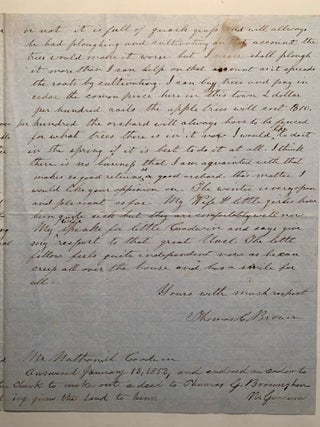 or not it is full of quack grass and will allways
be bad ploughing and cultivating on that account the
trees would make it worse but I never shall plough
it more than I can help on that account as it spreads
the roots by cultivating I can buy trees and pay in
cedar the common price here in this town 2 dollar
per hundred rails the apple trees will cost
per hundred the orchard will always have to be fenced
for what trees there is in it now I would like to do it
in the spring if it is best to do it at all. I think
there is no business that I am aquainted with that
makes so good returns as a good orchard. this matter I
would like your oppinion on. The winter is very open
and pleasant so far. My Wife & little girls have
been quite sick but they are comfortably well now
My Wife speaks for little Goodwin and says give
my respect to that great Uncle. The little
fellow feels quite independent now as he can
creep all over the house and has a smile for
all.
Yours with much respect
Thomas G. Brown
Mr Nathaniel Goodwin
Answered January 18, 1853, and enclosed an order to
Clark to make out a deed to Thomas G. Brown, he
giving the Land to him.
N. Goodwin